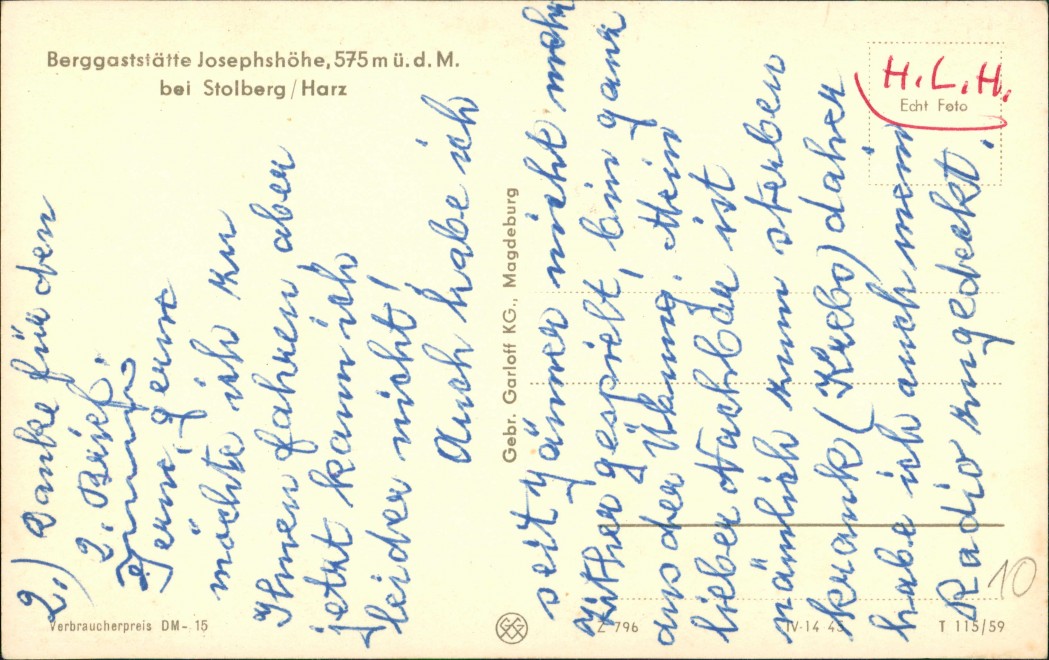 Berggaststätte Josephshöhe, 575 m ü. d. M.
bei Stolberg / Harz
H. L. H.
Echt Foto
2.) Danke für den
2. Brief.
Gerne, gerne
möchte ich zu
Ihnen fahren aber
jetzt kann ich
leider nicht!
Auch habe ich
seit Jänner nicht mehr
Zither gespielt, bin ganz
aus der Übung. Mein
lieber Nachbar ist
nämlich zum sterben
krank (Krebs) daher
habe ich auch mein
Radio zugedeckt.
Gebr. Garloff KG., Magdeburg
Verbraucherpreis DM -.15
Z 796
IV-14 45
T 115/59
10